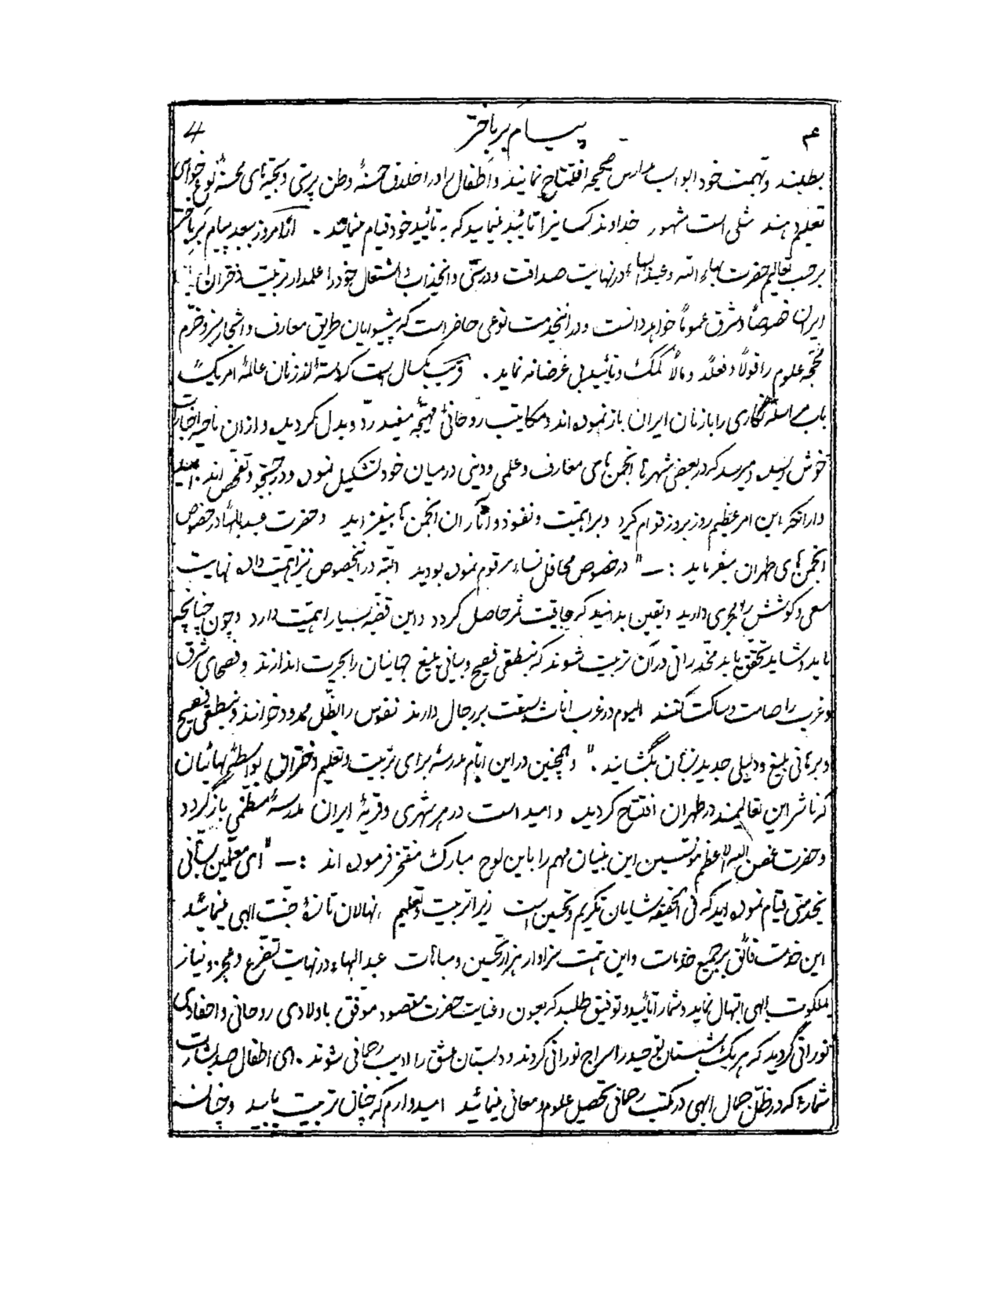 ۴ پیام بر باختر 4
بطلبند و بهمت خود ابواب مدارس صحیحه افتتاح نمایند و اطفال را در اخلاق حسنهٔ وطن پرستی و
تعلیم دهند مثلی است مشهور خداوند کسانیرا تائید مینماید که به تائید خود قیام مینمایند . اگر امروز بعد پیام بر باختر
بر حسب تعالیم حضرت بهاء الله و عبدالبهاء در نهایت صداقت و درستی و انجذاب و اشتعال خود را علمدار تربیت دختران
ایران خصوصاً و شرق عموماً خواهد دانست و در اینخدمت نوعی حاضر است که پیشوایان طریق معارف و اشجار سبز و خرم
علوم را قولاً و فعلاً و مالاً کمک و تائید بی غرضانه نماید . قریب یکسال است که زنان عالمهٔ امریک
باب مراسله نگاری را با زنان ایران باز نموده اند و مکاتیب روحانی مهیجه مفیده رد و بدل گردیده و از آن ناحیه اخبارات
خوش رسیده و میرسد که در بعضی شهرها انجمن های معارف و علمی و دینی در میان خود تشکیل نموده و در جستجو و تفحص اند
دارد که این امر عظیم روز بروز قوام گیرد و بر اهمیت و نفوذ و آثار آن انجمن ها بیفزاید و حضرت عبدالبهاء در خصوص
انجمن های طهران میفرماید :— " در خصوص محافل نساء مرقوم نموده بودید البته در اینخصوص نیز اهمیت داده نهایت
سعی و کوشش را مجری دارید و یقین بدانید که عاقبت ثمر حاصل گردد و این قضیه بسیار اهمیت دارد و چون چنانچه
باید و شاید تحقق یابد مخدراتی در آن تربیت شوند که بنطقی فصیح و بیانی بلیغ جهانیان را بحیرت اندازند و فصحای شرق
و غرب را صامت و ساکت کنند الیوم در غرب اناث سبقت بر رجال دارند نفوس را بظل ممدود خوانند و بنطقی فصیح
و برهانی بلیغ و دلیلی جدید زبان بگشایند . " و همچنین در این ایام مدرسهٔ برای تربیت و تعلیم دختران بواسطهٔ بهائیان
که ناشر این تعالیمند در طهران افتتاح گردیده و امید است در هر شهری و قریهٔ ایران مدرسهٔ منظمی باز گردد
و حضرت غصن الله الاعظم مؤسسین این بنیان مهم را باین لوح مبارک مفتخر فرموده اند :— " ای معلمین دبستانی
بخدمتی قیام نموده اید که فی الحقیقه شایان تکریم و تحسین است زیرا تربیت و تعلیم نهالان تازهٔ جنت الهی مینمائید
این خدمت فائق بر جمیع خدمات و این همت سزاوار هزار تحسین و مباهات عبدالبهاء در نهایت تضرع و عجز و نیاز
بملکوت الهی ابتهال نماید و شما را تائید و توفیق طلبد که بعون و عنایت حضرت مقصود موفق باولادی روحانی و احفادی
نورانی گردید که هر یک شبستان توحید را سراج نورانی گردند و دبستان عشق را ادیب رحمانی شوند . ای اطفال
شماره که در ظل جمال الهی در مکتب رحمانی تحصیل علوم و معانی مینمائید امیدوارم که چنان تربیت یابید و چنان